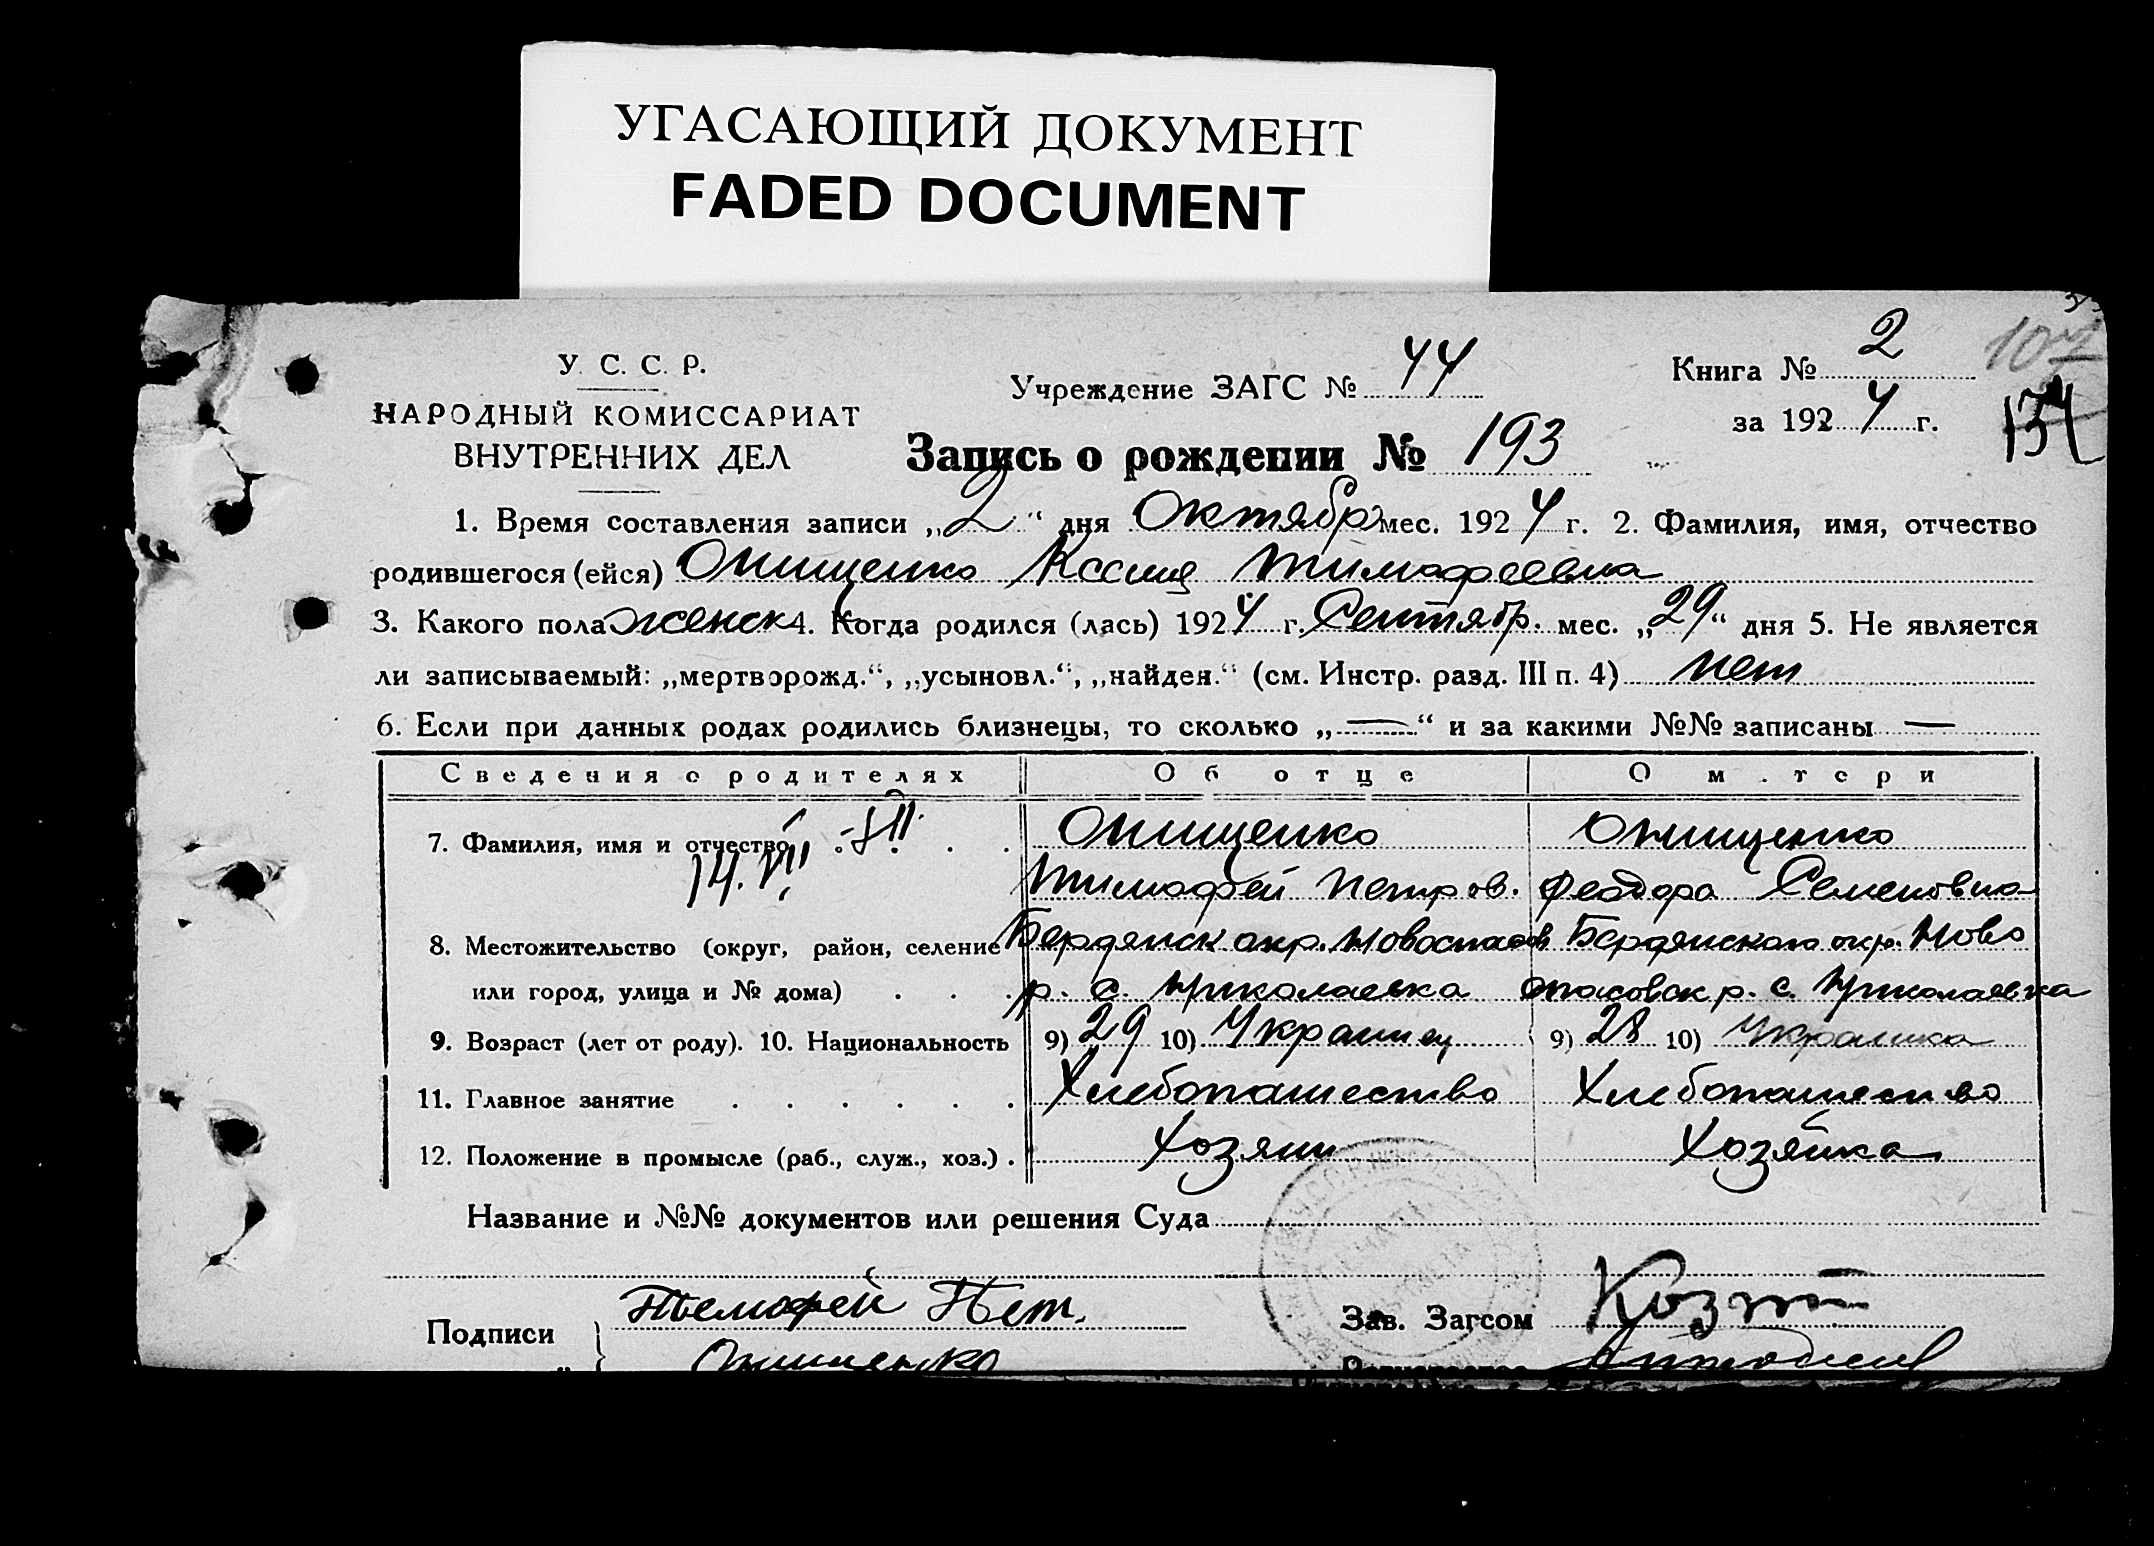 УГАСАЮЩИЙ ДОКУМЕНТ
FADED DOCUMENT
У. С. С. Р.
НАРОДНЫЙ КОМИССАРИАТ
ВНУТРЕННИХ ДЕЛ
Учреждение ЗАГС № 44
Книга № 2
за 1924 г.
107
134
Запись о рождении № 193
1. Время составления записи „2“ дня Октября мес. 1924 г. 2. Фамилия, имя, отчество
родившегося (ейся) Онищенко Ксения Тимофеевна
3. Какого пола женск 4. Когда родился (лась) 1924 г. Сентябр. мес. „29“ дня 5. Не является
ли записываемый: „мертворожд.“, „усыновл.“, „найден.“ (см. Инстр. разд. III п. 4) нет
6. Если при данных родах родились близнецы, то сколько „—“ и за какими №№ записаны —
Сведения о родителях Об отце О м.тери
7. Фамилия, имя и отчество Онищенко Онищенко
14. VII Тимофей Петров. Феодора Семеновна
8. Местожительство (округ, район, селение Бердянск окр. Новоспасов Бердянского окр. Ново
или город, улица и № дома) р. с. Николаевка спасовск р. с. Николаевка
9. Возраст (лет от роду). 10. Национальность 9) 29 10) Украинец 9) 28 10) Украинка
11. Главное занятие Хлебопашество Хлебопашество
12. Положение в промысле (раб., служ., хоз.) Хозяин Хозяйка
Название и №№ документов или решения Суда
Подписи Тиемофей Пет.
Онищенко
Зав. Загсом